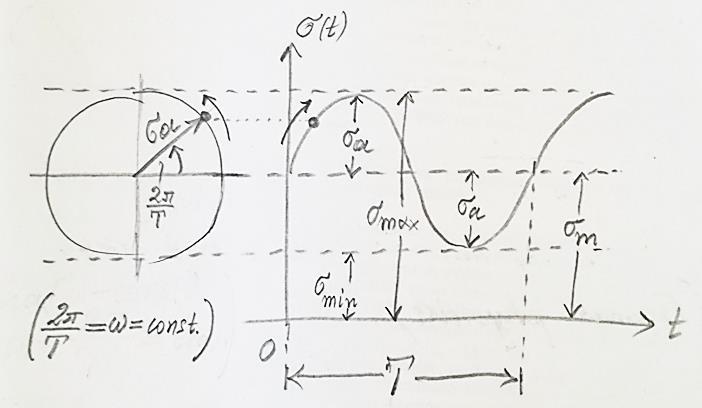 σ(t)
σa
2π/T
σa
σmax
σa
σm
σmin
(2π/T = ω = const.)
0
t
T